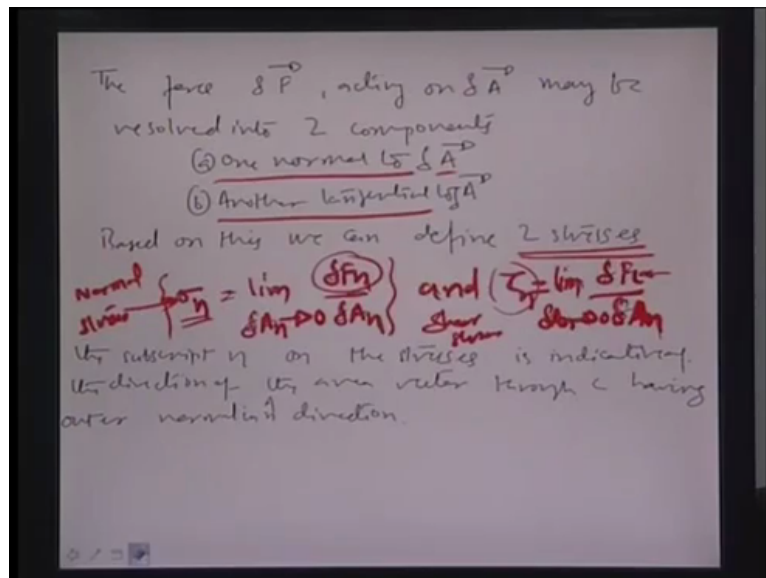 The force δF, acting on δA may be
resolved into 2 components
(a) One normal to δA
(b) Another tangential to δA
Based on this we can define 2 stresses
Normal stress σn = lim δAn→0 δFn/δAn and τn = lim δAn→0 δFt/δAn shear stress
the subscript n on the stresses is indicative of
the direction of the area vector through C having
outer normal in n̂ direction.